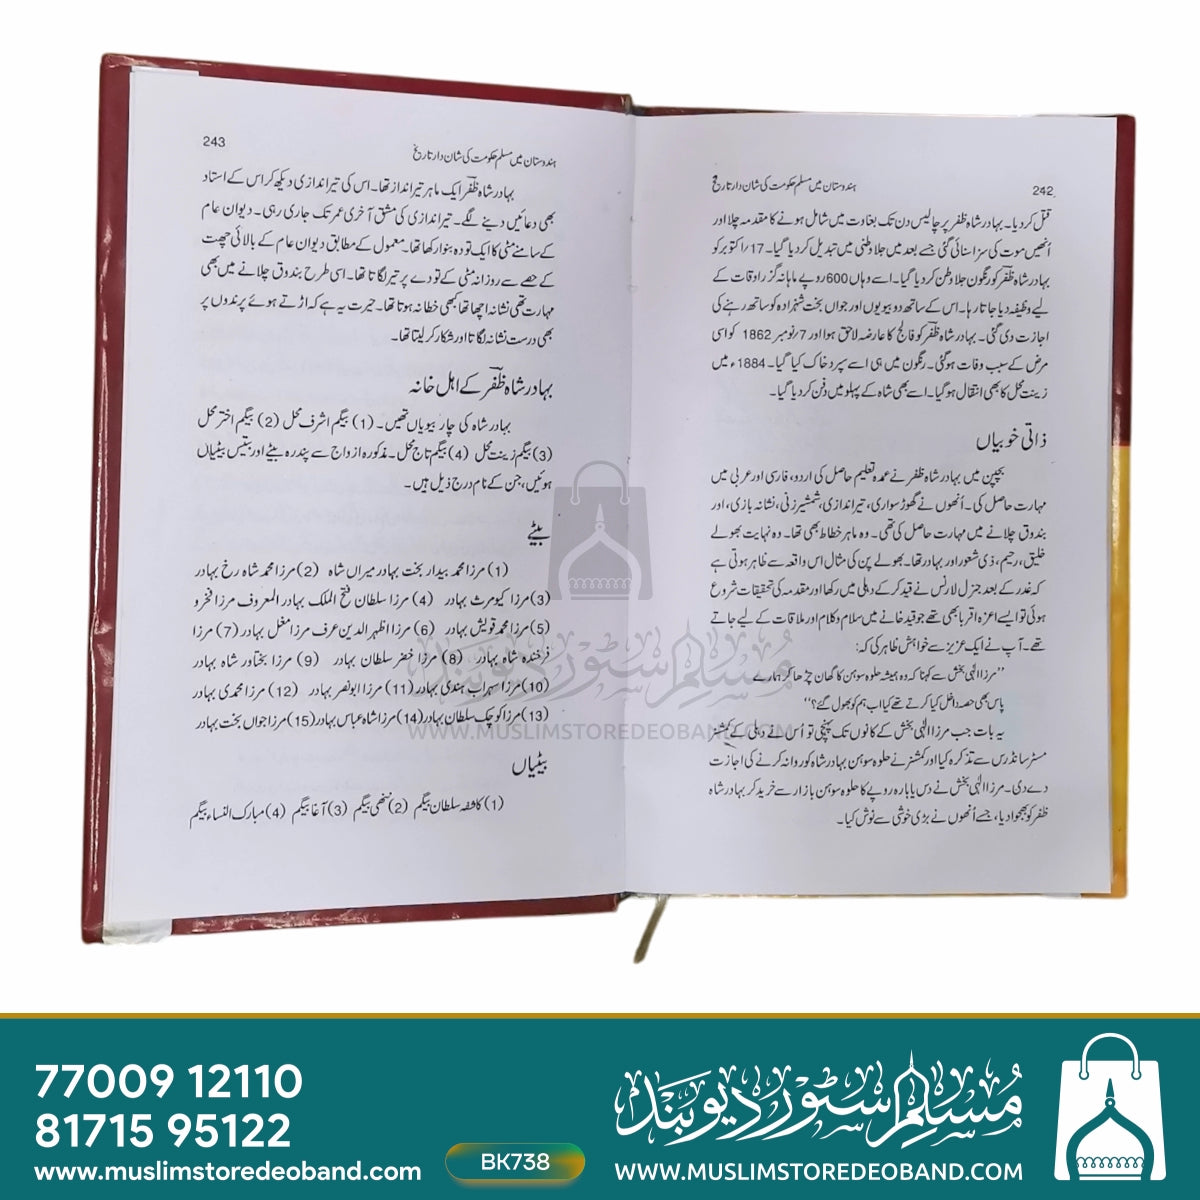 242
ہندوستان میں مسلم حکومت کی شان دار تاریخ
قتل کردیا۔ بہادر شاہ ظفر پر چالیس دن تک بغاوت میں شامل ہونے کا مقدمہ چلا اور
اُنھیں موت کی سزا سنائی گئی جسے بعد میں جلا وطنی میں تبدیل کردیا گیا۔ 17/اکتوبر کو
بہادر شاہ ظفرؔ کو رنگون جلا وطن کردیا گیا۔ اسے وہاں 600 روپے ماہانہ گزر اوقات کے
لیے وظیفہ دیا جاتا رہا۔ اس کے ساتھ دو بیویوں اور جواں بخت شہزادہ کو ساتھ رہنے کی
اجازت دی گئی۔ بہادر شاہ ظفرؔ کو فالج کا عارضہ لاحق ہوا اور 7/نومبر 1862 کو اسی
مرض کے سبب وفات ہوگئی۔ رنگون میں ہی اسے سپرد خاک کیا گیا۔ 1884ء میں
زینت محل کا بھی انتقال ہوگیا۔ اسے بھی شاہ کے پہلو میں دفن کردیا گیا۔
ذاتی خوبیاں
بچپن میں بہادر شاہ ظفر نے عمدہ تعلیم حاصل کی اردو، فارسی اور عربی میں
مہارت حاصل کی۔ اُنھوں نے گھوڑ سواری، تیر اندازی، شمشیر زنی، نشانہ بازی، اور
بندوق چلانے میں مہارت حاصل کی تھی۔ وہ ماہر خطاط بھی تھا۔ وہ نہایت بھولے
خلیق، رحیم، ذی شعور اور بہادر تھا۔ بھولے پن کی مثال اس واقعہ سے ظاہر ہوتی ہے
کہ غدر کے بعد جنرل لارنس نے قید کرکے دہلی میں رکھا اور مقدمہ کی تحقیقات شروع
ہوئی تو ایسے اعزہ اقربا بھی تھے جو قید خانے میں سلام و کلام اور ملاقات کے لیے جاتے
تھے۔ آپ نے ایک عزیز سے خواہش ظاہر کی کہ:
”مرزا الٰہی بخش سے کہنا کہ وہ ہمیشہ حلوہ سوہن کا گھان چڑھا کر ہمارے
پاس بھی حصہ داخل کیا کرتے تھے کیا اب ہم کو بھول گئے؟“
یہ بات جب مرزا الٰہی بخش کے کانوں تک پہنچی تو اُس نے دہلی کے کمشنر
مسٹر سانڈرس سے تذکرہ کیا اور کمشنر نے حلوہ سوہن بہادر شاہ کو روانہ کرنے کی اجازت
دے دی۔ مرزا الٰہی بخش نے دس یا بارہ روپے کا حلوہ سوہن بازار سے خرید کر بہادر شاہ
ظفر کو بھجوا دیا، جسے اُنھوں نے بڑی خوشی سے نوش کیا۔
243
ہندوستان میں مسلم حکومت کی شان دار تاریخ
بہادر شاہ ظفرؔ ایک ماہر تیر انداز تھا۔ اس کی تیر اندازی دیکھ کر اس کے استاد
بھی دعائیں دینے لگے۔ تیر اندازی کی مشق آخری عمر تک جاری رہی۔ دیوان عام
کے سامنے مٹی کا ایک تودہ بنوا رکھا تھا۔ معمول کے مطابق دیوان عام کے بالائی چھت
کے حصے سے روزانہ مٹی کے تودے پر تیر لگاتا تھا۔ اسی طرح بندوق چلانے میں بھی
مہارت تھی نشانہ اچھا تھا کبھی خطا نہ ہوتا تھا۔ حیرت یہ ہے کہ اڑتے ہوئے پرندوں پر
بھی درست نشانہ لگاتا اور شکار کر لیتا تھا۔
بہادر شاہ ظفرؔ کے اہل خانہ
بہادر شاہ کی چار بیویاں تھیں۔ (1) بیگم اشرف محل (2) بیگم اختر محل
(3) بیگم زینت محل (4) بیگم تاج محل۔ مذکورہ ازواج سے پندرہ بیٹے اور بتیس بیٹیاں
ہوئیں، جن کے نام درج ذیل ہیں۔
بیٹے
(1) مرزا محمد بیدار بخت بہادر میراں شاہ (2) مرزا محمد شاہ رخ بہادر
(3) مرزا کیومرث بہادر (4) مرزا سلطان فتح الملک بہادر المعروف مرزا فخرو
(5) مرزا محمد قویش بہادر (6) مرزا اظہر الدین عرف مرزا مغل بہادر (7) مرزا
فرخندہ شاہ بہادر (8) مرزا خضر سلطان بہادر (9) مرزا بختاور شاہ بہادر
(10) مرزا سہراب ہندی بہادر (11) مرزا ابونصر بہادر (12) مرزا محمدی بہادر
(13) مرزا کوچک سلطان بہادر (14) مرزا شاہ عباس بہادر (15) مرزا جواں بخت بہادر
بیٹیاں
(1) کاشفہ سلطان بیگم (2) ننھی بیگم (3) آغا بیگم (4) مبارک النساء بیگم
مسلم سٹور دیوبند
WWW.MUSLIMSTOREDEOBAND.COM
77009 12110
81715 95122
www.muslimstoredeoband.com
BK738
مسلم سٹور دیوبند
WWW.MUSLIMSTOREDEOBAND.COM